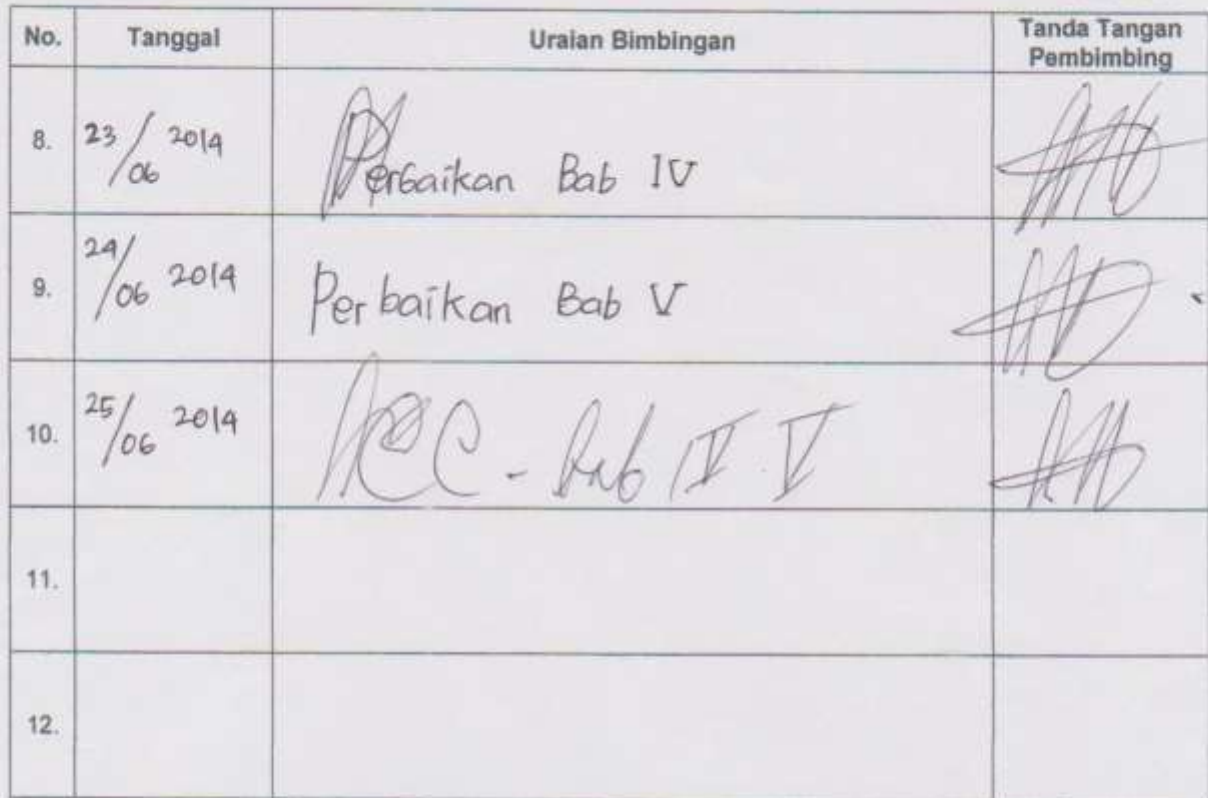 No. Tanggal Uraian Bimbingan Tanda Tangan Pembimbing
8. 23/06 2014 Perbaikan Bab IV
9. 24/06 2014 Perbaikan Bab V
10. 25/06 2014 ACC - Bab IV V
11.
12.